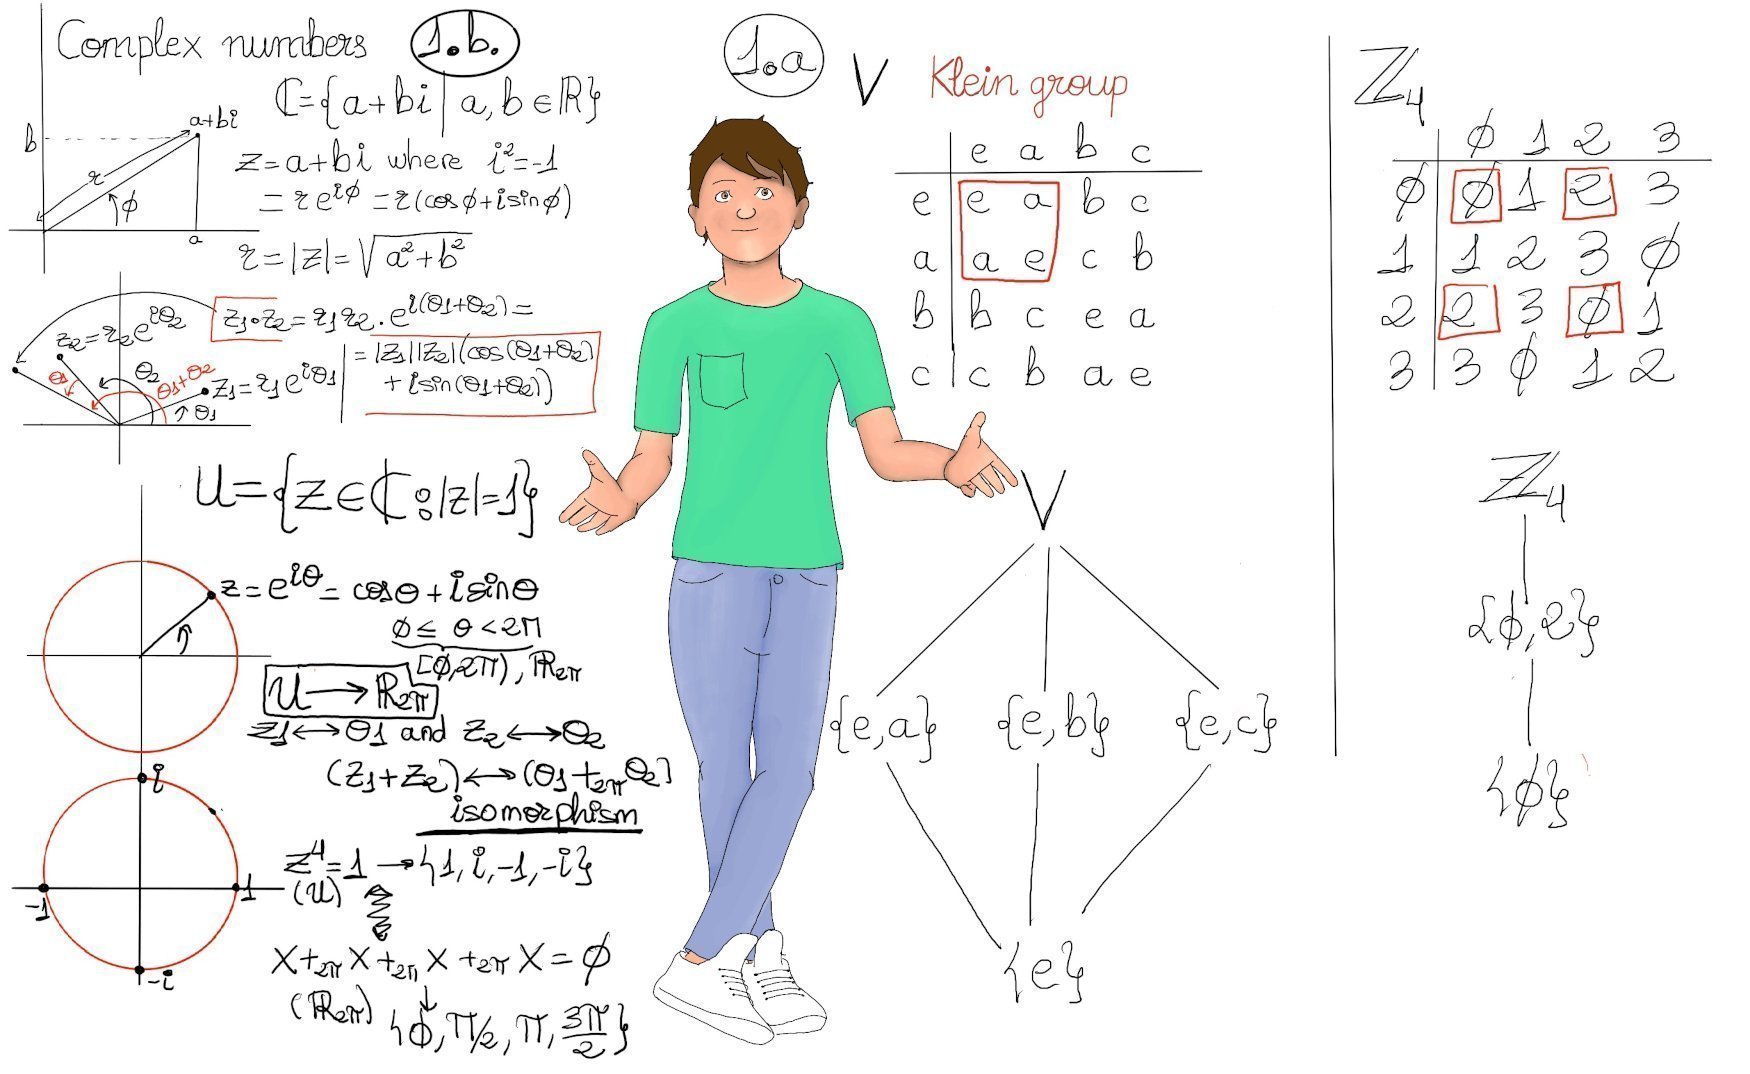 Complex numbers 1.b.
ℂ={a+bi | a,b∈ℝ}
a+bi
b
r
ϕ
a
z=a+bi where i²=-1
=re^{iϕ}=r(cosϕ+isinϕ)
r=|z|=√(a²+b²)
z₂=r₂e^{iθ₂}
θ₁
θ₂
θ₁+θ₂
z₁=r₁e^{iθ₁}
θ₁
z₁·z₂=r₁r₂·e^{i(θ₁+θ₂)}=
=|z₁||z₂|(cos(θ₁+θ₂)
+isin(θ₁+θ₂))
U={z∈ℂ:|z|=1}
z=e^{iθ}=cosθ+isinθ
ϕ≤θ<2π
[ϕ,2π), ℝ₂π
U→ℝ₂π
z₁↔θ₁ and z₂↔θ₂
(z₁+z₂)↔(θ₁+₂πθ₂)
isomorphism
i
-1
1
-i
z⁴=1→{1,i,-1,-i}
(U)
x+₂πx+₂πx+₂πx=ϕ
(ℝ₂π)
{ϕ,π/2,π,3π/2}
1.a
V Klein group
e a b c
e e a b c
a a e c b
b b c e a
c c b a e
V
{e,a} {e,b} {e,c}
{e}
ℤ₄
ϕ 1 2 3
ϕ ϕ 1 2 3
1 1 2 3 ϕ
2 2 3 ϕ 1
3 3 ϕ 1 2
ℤ₄
{ϕ,2}
{ϕ}